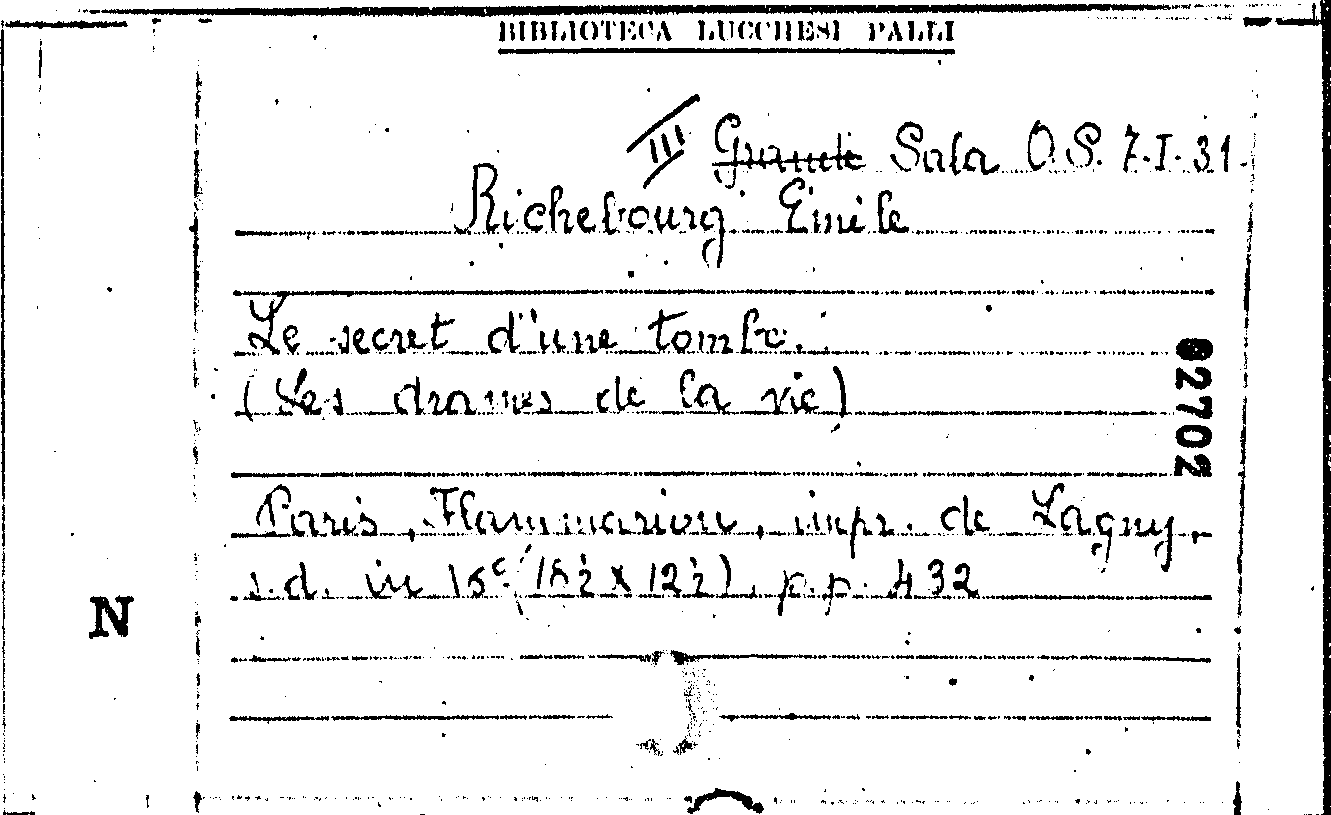 BIBLIOTECA LUCCHESI PALLI
III Grande Sala O.S. 7.I.31.
Richebourg Émile
Le secret d'une tombe.
(Les drames de la vie)
82702
Paris, Flammarion, impr. de Lagny,
s.d. in 16° (18½ x 12½), p.p. 432
N